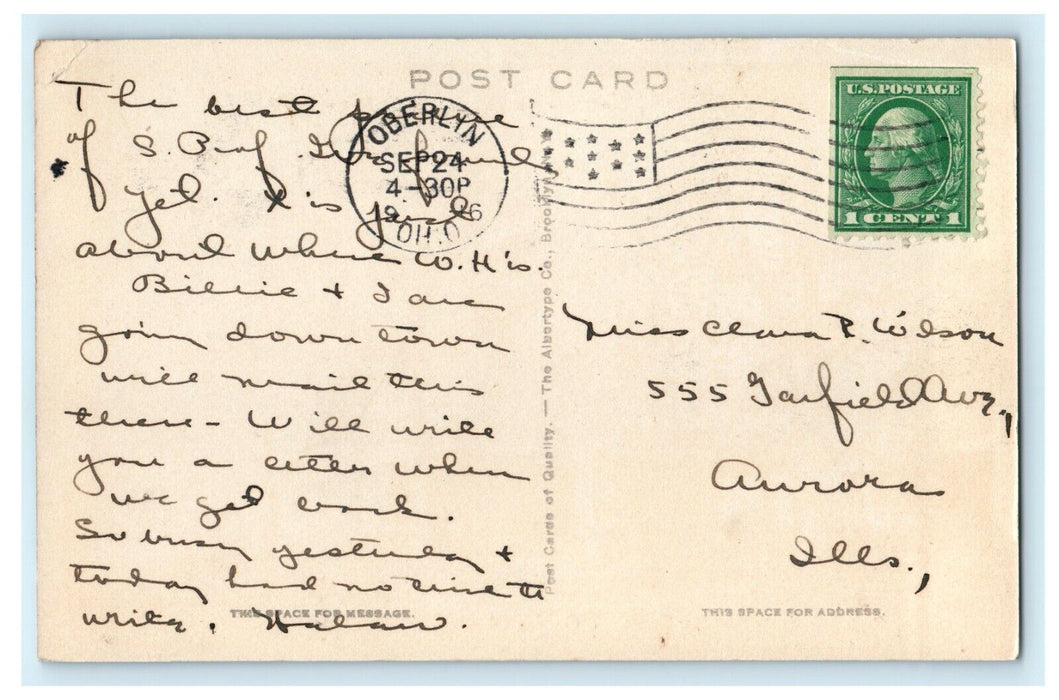 POST CARD
U.S. POSTAGE
1 CENT 1
OBERLYN
SEP 24
4-30P
19 6
OHIO
The best picture
of S. Prof.
yet. It is just
about where W. H. is.
Billie & I are
going down town
will mail this
there - Will write
you a letter when
we get back.
So busy yesterday &
today had no time to
write.
THIS SPACE FOR MESSAGE.
Post Cards of Quality. — The Albertype Co., Brooklyn
Miss Clara P. Wilson
555 Garfield Ave.,
Aurora
Ills.,
THIS SPACE FOR ADDRESS.